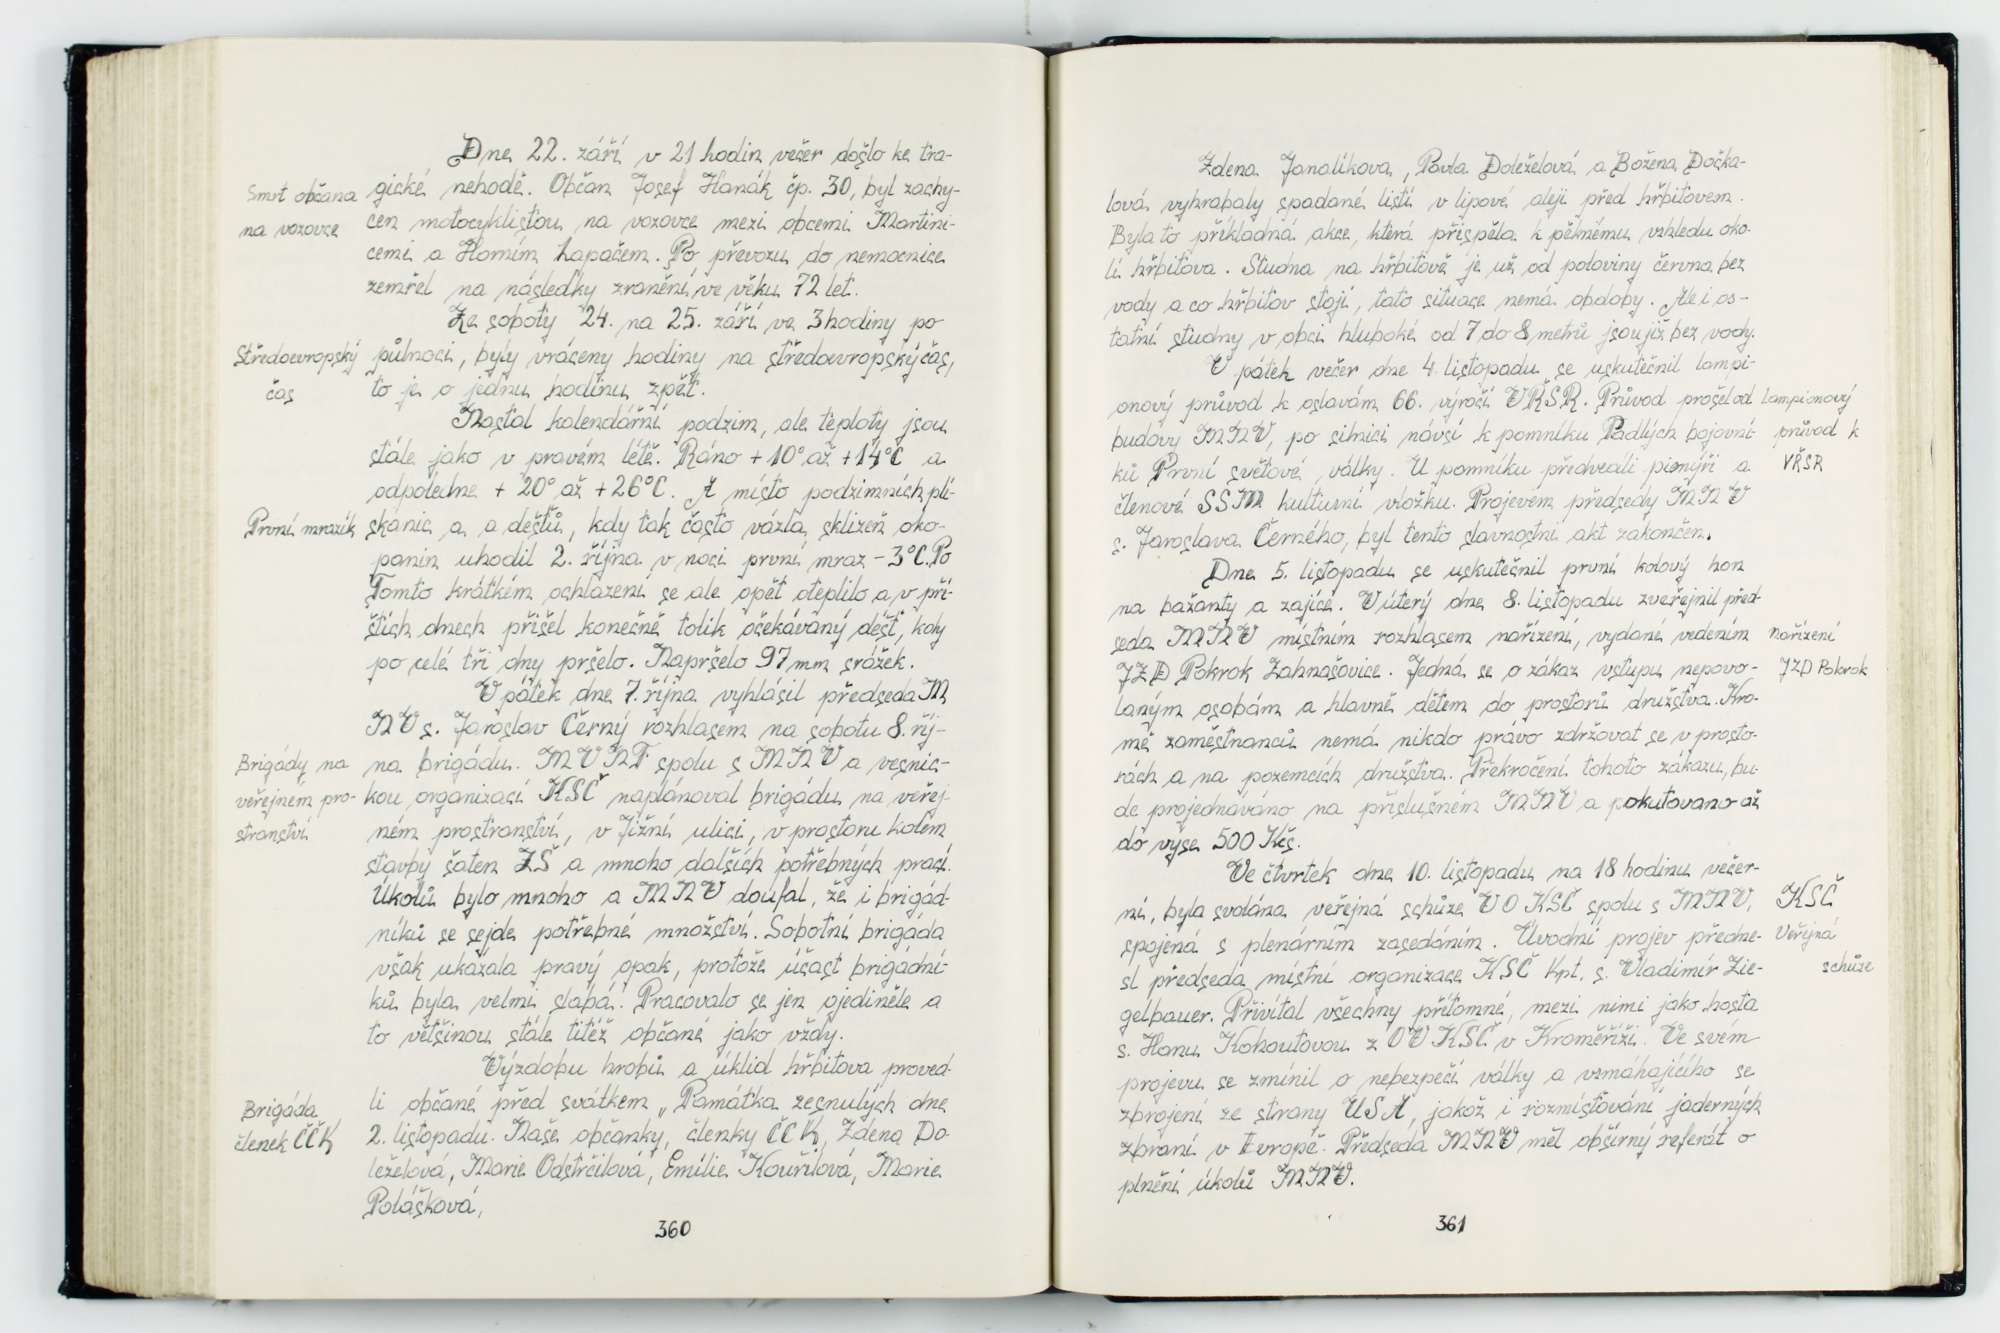 Dne 22. září v 21 hodin večer došlo ke tra-
Smrt občana
na vozovce
gické nehodě. Občan Josef Hanák čp. 30, byl zachy-
cen motocyklistou na vozovce mezi obcemi Martini-
cemi a Horním Lapačem. Po převozu do nemocnice
zemřel na následky zranění ve věku 72 let.
Ze soboty 24. na 25. září ve 3 hodiny po
Středoevropský
čas
půlnoci, byly vráceny hodiny na středoevropský čas,
to je o jednu hodinu zpět.
Nastal kalendářní podzim, ale teploty jsou
stále jako v pravém létě. Ráno +10° až +14°C a
odpoledne +20° až +26°C. A místo podzimních plí-
První mrazík
skanic a a dešťů, kdy tak často vázla sklizeň oko-
panin uhodil 2. října v noci první mraz -3°C. Po
Tomto krátkém ochlazení se ale opět oteplilo a v pří-
štích dnech přišel konečně tolik očekávaný déšť, kdy
po celé tři dny pršelo. Napršelo 97 mm srážek.
V pátek dne 7. října vyhlásil předseda M
NV s. Jaroslav Černý rozhlasem na sobotu 8. říj-
Brigády na
veřejném pro-
stranství
na brigádu. MVNF spolu s MNV a vesnic-
kou organizací KSČ naplánoval brigádu na veřej-
ném prostranství, v Jižní ulici, v prostoru kolem
stavby šaten ZŠ a mnoho dalších potřebných prací.
Úkolů bylo mnoho a MNV doufal, že i brigád-
níků se sejde potřebné množství. Sobotní brigáda
však ukázala pravý opak, protože účast brigádní-
ků byla velmi slabá. Pracovalo se jen ojediněle a
to většinou stále titéž občané jako vždy.
Výzdobu hrobů a úklid hřbitova proved-
Brigáda
členek ČČK
li občané před svátkem „Památka zesnulých dne
2. listopadu. Naše občanky, členky ČČK, Zdena Do
ležalová, Marie Odstrčilová, Emílie Kouřilová, Marie
Polášková,
360
Zdena Janalíkova, Pavla Doleželová a Božena Dočka-
lová vyhrabaly spadané listí v lipové aleji před hřbitovem.
Byla to příkladná akce, která přispěla k pěknému vzhledu oko-
lí hřbitova. Studna na hřbitově je už od poloviny června bez
vody a co hřbitov stojí, tato situace nemá obdoby. Ale i os-
tatní studny v obci hluboké od 7 do 8 metrů jsou již bez vody.
V pátek večer dne 4. listopadu se uskutečnil lampi-
onový průvod k oslavám 66. výročí VŘSR. Průvod prošel od
Lampionový
průvod k
VŘSR
budovy MNV, po silnici návsí k pomníku Padlých bojovní-
ků První světové války. U pomníku předvedli pionýři a
členové SSM kulturní vložku. Projevem předsedy MNV
s. Jaroslava Černého, byl tento slavnostní akt zakončen.
Dne 5. listopadu se uskutečnil první kolový hon
na bažanty a zajíce. V úterý dne 8. listopadu zveřejnil před-
seda MNV místním rozhlasem nařízení, vydané vedením
nařízení
JZD Pokrok
JZD Pokrok Zahnašovice. Jedná se o zákaz vstupu nepovo-
laným osobám a hlavně dětem do prostorů družstva. Kro-
mě zaměstnanců nemá nikdo právo zdržovat se v prosto-
rách a na pozemcích družstva. Překročení tohoto zákazu, bu-
de projednáváno na příslušném MNV a pokutováno až
do výše 500 Kčs.
Ve čtvrtek dne 10. listopadu na 18 hodinu večer-
ní, byla svolána veřejná schůze VO KSČ spolu s MNV,
KSČ
Veřejná
schůze
spojená s plenárním zasedáním. Úvodní projev předne-
sl předseda místní organizace KSČ kpt. s. Vladimír Zie-
gelbauer. Přivítal všechny přítomné, mezi nimi jako hosta
s. Hanu Kohoutovou z OV KSČ v Kroměříži. Ve svém
projevu se zmínil o nebezpečí války a vzmáhajícího se
zbrojení ze strany USA, jakož i rozmisťování jaderných
zbraní v Evropě. Předseda MNV měl obšírný referát o
plnění úkolů MNV.
361